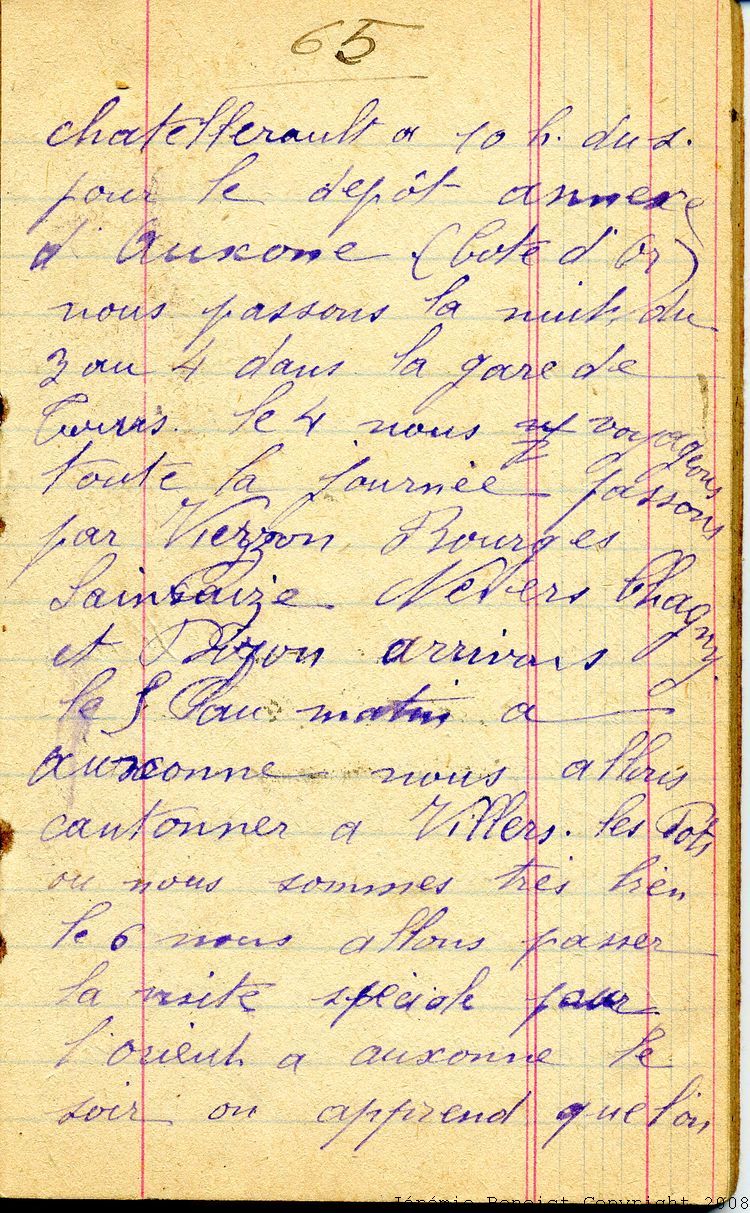 65
chatellerault a 10 h. du s.
pour le depôt annexe
d'Auxone (Cote d'Or)
nous passons la nuit du
3 au 4 dans la gare de
Tours. le 4 nous voyageons
toute la journée passons
par Vierzon Bourges
Saincaize Nevers Chagny
et Dijon arrivons
le 5 matin a
auxonne nous allons
cantonner a Villers. les Pots
ou nous sommes très bien
le 6 nous allons passer
la visite speciale pour
l'orient a auxonne le
soir on apprend que l'on
Jérémie Benoist Copyright 2008